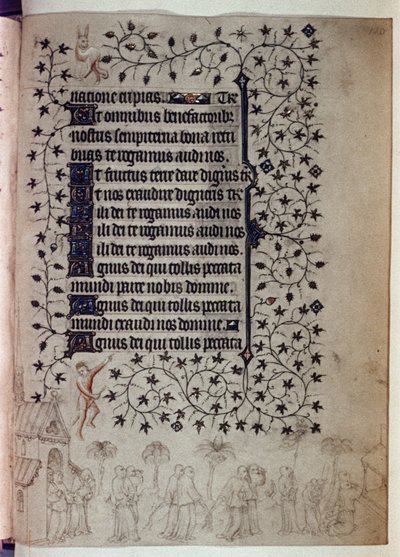 natione eripias. Te
Et omnibus benefactoribz
nostris sempiterna bona retri
buas te rogamus audi nos.
Et fructus terre dare digneris te
Et nos exaudire digneris te
Fili dei te rogamus audi nos
Fili dei te rogamus audi nos
Fili dei te rogamus audi nos
Agnus dei qui tollis peccata
mundi parce nobis domine.
Agnus dei qui tollis peccata
mundi exaudi nos domine.
Agnus dei qui tollis peccata